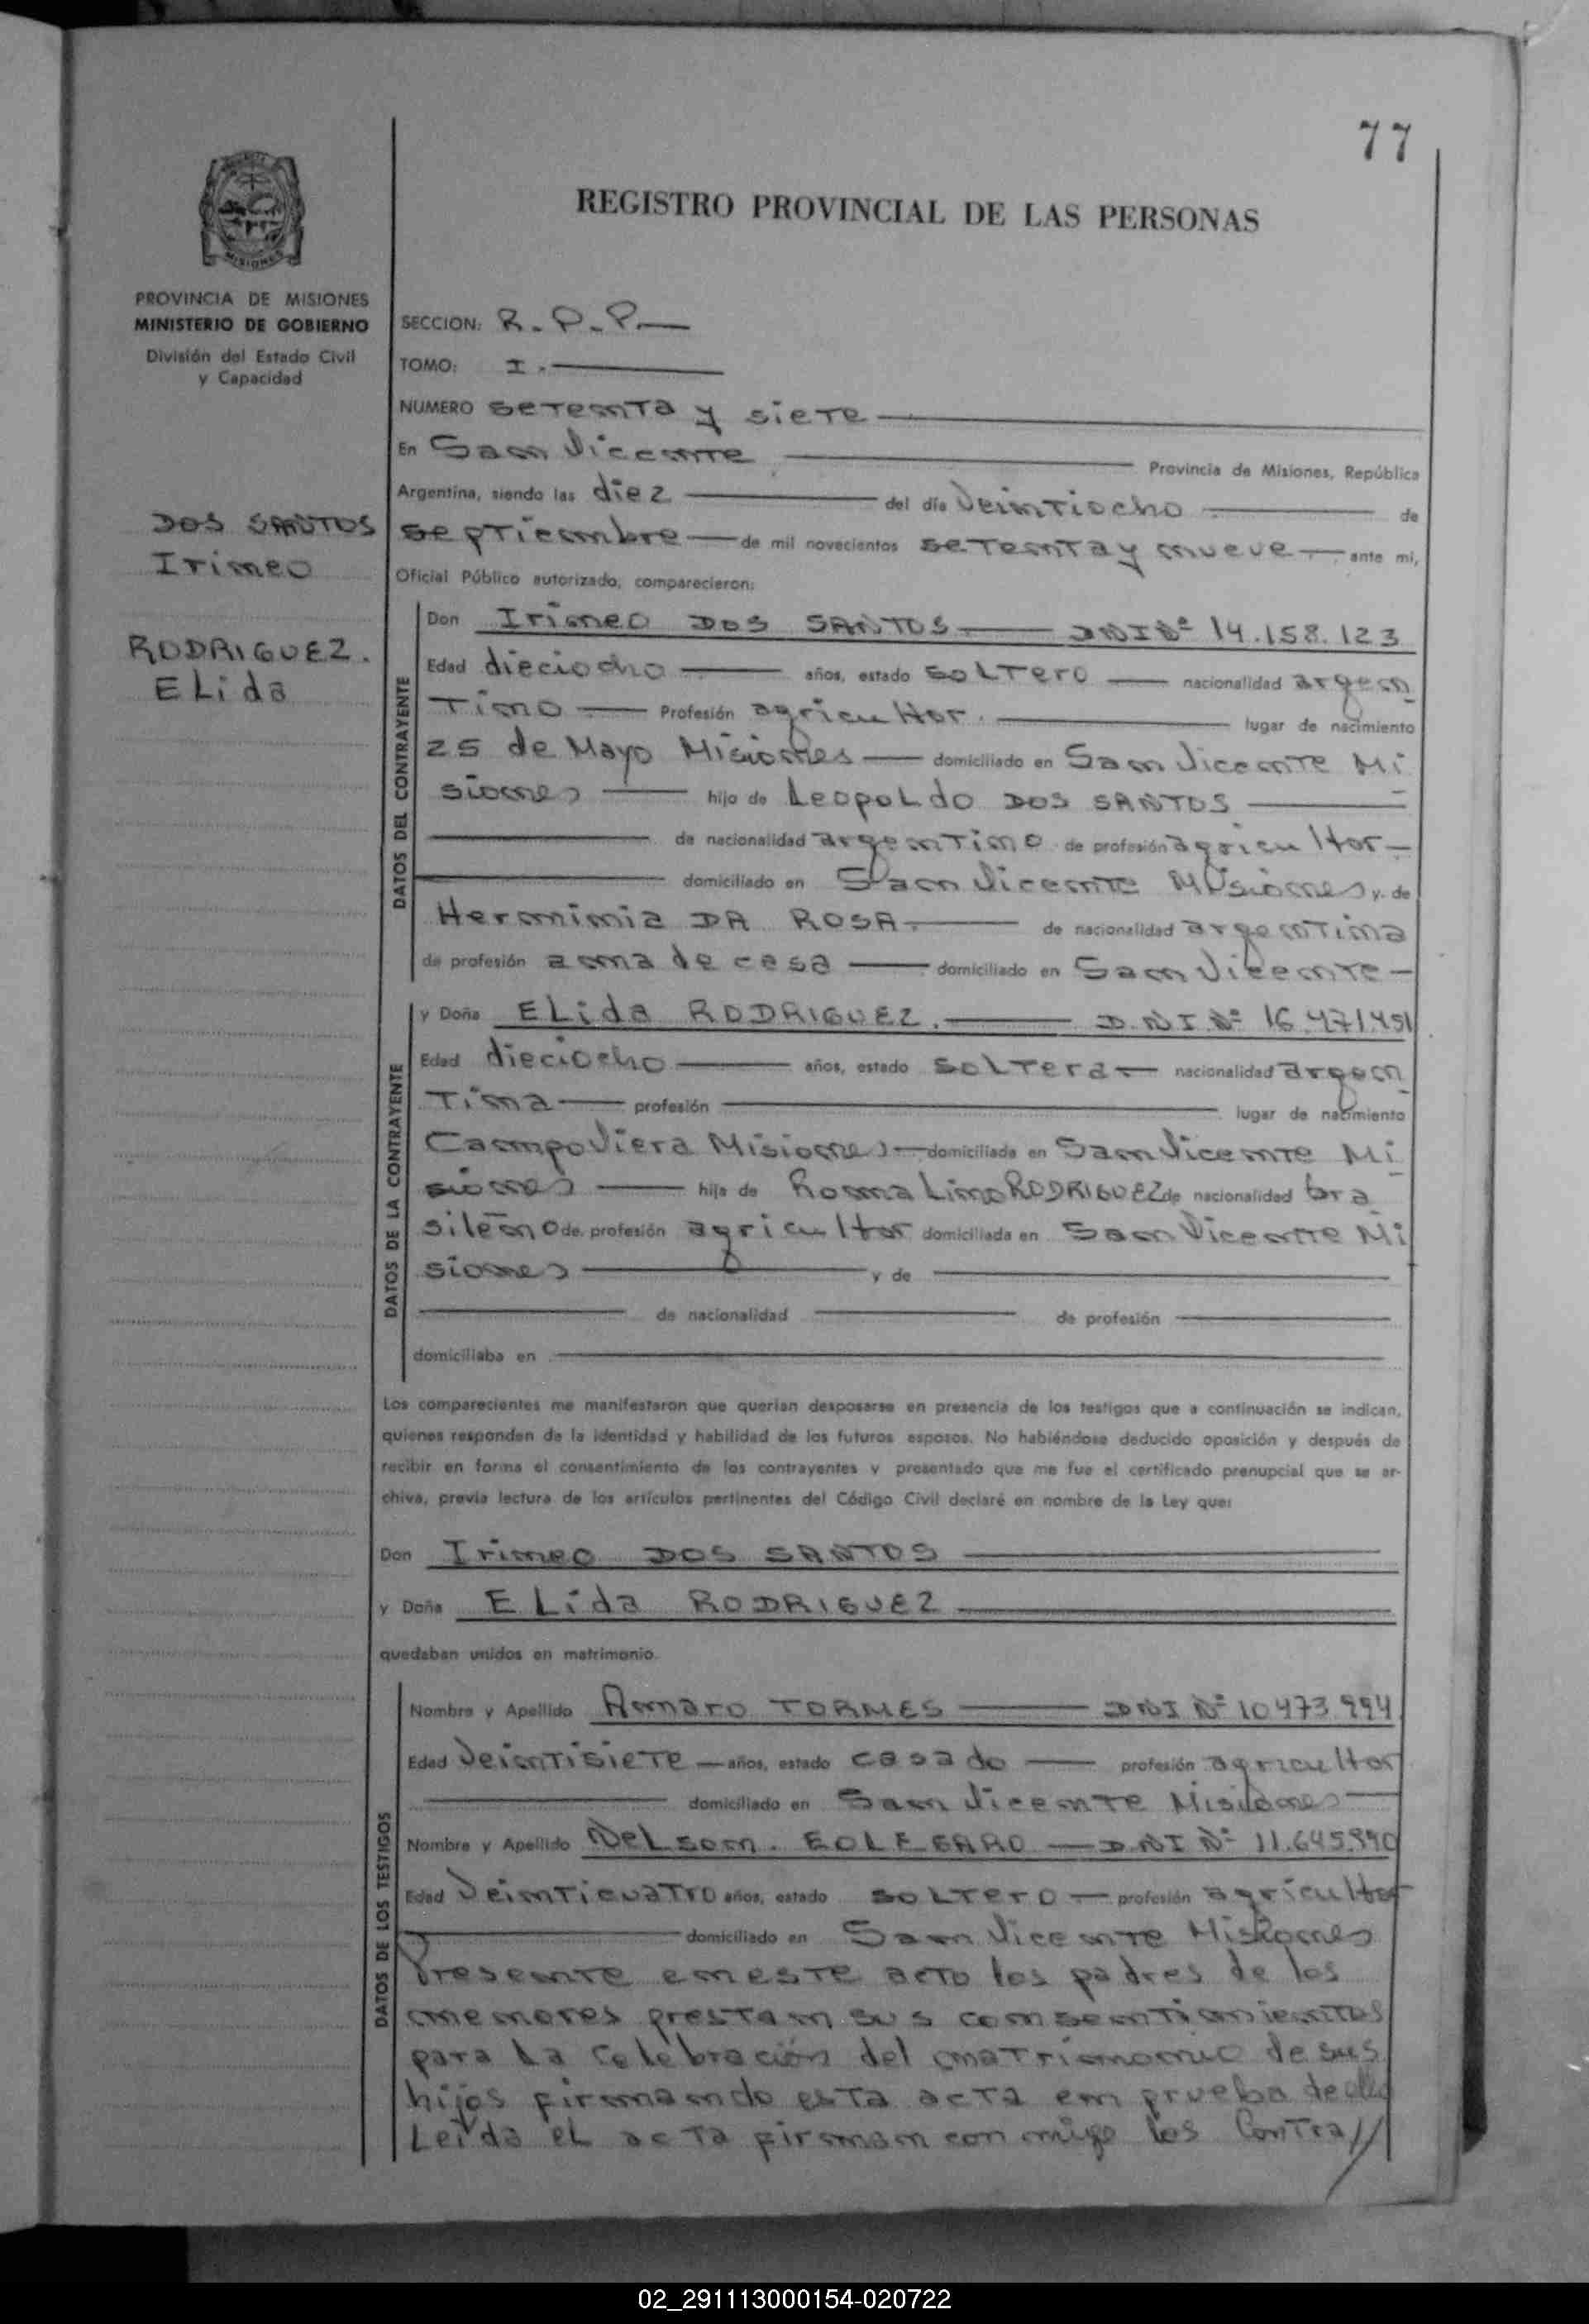 77
REGISTRO PROVINCIAL DE LAS PERSONAS
MISIONES
PROVINCIA DE MISIONES
MINISTERIO DE GOBIERNO
División del Estado Civil
y Capacidad
DOS SANTOS
Irineo
RODRIGUEZ.
ELida
SECCION: R.P.P.
TOMO: I.
NUMERO setenta y siete
En San Vicente Provincia de Misiones, República
Argentina, siendo las diez del día Veintiocho de
septiembre de mil novecientos setenta y nueve ante mi,
Oficial Público autorizado, comparecieron:
DATOS DEL CONTRAYENTE
Don Irineo DOS SANTOS DNI Nº 14.158.123
Edad dieciocho años, estado soltero nacionalidad argen
tino Profesión agricultor. lugar de nacimiento
25 de Mayo Misiones domiciliado en San Vicente Mi
siones hijo de Leopoldo DOS SANTOS
de nacionalidad argentino de profesión agricultor
domiciliado en San Vicente Misiones y de
Herminia DA ROSA. de nacionalidad argentina
de profesión ama de casa domiciliado en San Vicente
DATOS DE LA CONTRAYENTE
y Doña ELida RODRIGUEZ. D.N.I.Nº 16.471.451
Edad dieciocho años, estado soltera nacionalidad argen
tina profesión lugar de nacimiento
Campo Viera Misiones domiciliada en San Vicente Mi
siones hija de Roma Lino RODRIGUEZ de nacionalidad bra
sileño de profesión agricultor domiciliada en San Vicente Mi
siones y de
de nacionalidad de profesión
domiciliaba en
Los comparecientes me manifestaron que querían desposarse en presencia de los testigos que a continuación se indican,
quienes responden de la identidad y habilidad de los futuros esposos. No habiéndose deducido oposición y después de
recibir en forma el consentimiento de los contrayentes y presentado que me fue el certificado prenupcial que se ar-
chiva, previa lectura de los artículos pertinentes del Código Civil declaré en nombre de la Ley que:
Don Irineo DOS SANTOS
y Doña ELida RODRIGUEZ
quedaban unidos en matrimonio.
DATOS DE LOS TESTIGOS
Nombre y Apellido Amaro TORMES DNI Nº 10473.994
Edad Veintisiete años, estado casado profesión agricultor
domiciliado en San Vicente Misiones
Nombre y Apellido Nelson. D.NI Nº 11.645.990
Edad Veinticuatro años, estado soltero profesión agricultor
domiciliado en San Vicente Misiones
Presente en este acto los padres de los
menores prestan sus consentimientos
para la celebración del matrimonio de sus
hijos firmando esta acta en prueba de ello
Leida el acta firman con migo los Contra//
02_291113000154-020722